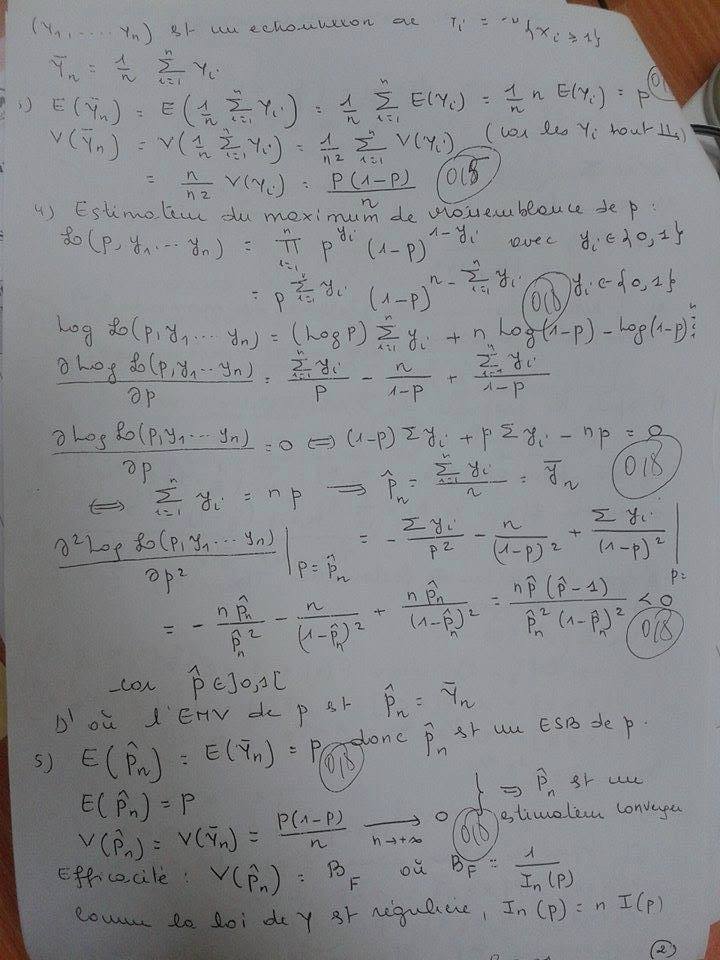 (Y₁, .... Yₙ) est un echantillon de Yᵢ = 1{xᵢ ≥ 1}
Ȳₙ = 1/n Σᵢ₌₁ⁿ Yᵢ
3) E(Ȳₙ) = E(1/n Σᵢ₌₁ⁿ Yᵢ) = 1/n Σᵢ₌₁ⁿ E(Yᵢ) = 1/n n E(Yᵢ) = p
V(Ȳₙ) = V(1/n Σᵢ₌₁ⁿ Yᵢ) = 1/n² Σᵢ₌₁ⁿ V(Yᵢ) (car les Yᵢ sont ⫫)
= n/n² V(Yᵢ) = p(1-p)/n 0,5
4) Estimateur du maximum de vraisemblance de p :
L(p, y₁ ... yₙ) = Πᵢ₌₁ⁿ p^yᵢ (1-p)^(1-yᵢ) avec yᵢ ∈ {0,1}
= p^(Σᵢ₌₁ⁿ yᵢ) (1-p)^(n - Σᵢ₌₁ⁿ yᵢ) 0,8 yᵢ ∈ {0,1}
Log L(p, y₁ ... yₙ) = (Log p) Σᵢ₌₁ⁿ yᵢ + n Log(1-p) - Log(1-p)
∂ Log L(p, y₁ ... yₙ)/∂p = Σᵢ₌₁ⁿ yᵢ/p - n/(1-p) + Σᵢ₌₁ⁿ yᵢ/(1-p)
∂ Log L(p, y₁ ... yₙ)/∂p = 0 ⟺ (1-p) Σ yᵢ + p Σ yᵢ - np = 0
⟺ Σᵢ₌₁ⁿ yᵢ = np ⟹ p̂ₙ = Σᵢ₌₁ⁿ yᵢ/n = Ȳₙ 0,8
∂² Log L(p, y₁ ... yₙ)/∂p² |p = p̂ₙ = - Σ yᵢ/p² - n/(1-p)² + Σ yᵢ/(1-p)² |p=
= - n p̂ₙ/p̂ₙ² - n/(1-p̂ₙ)² + n p̂ₙ/(1-p̂ₙ)² = n p̂ (p̂ - 1)/p̂ₙ² (1-p̂ₙ)² < 0 0,8
car p̂ ∈ ]0,1[
D'où l'EMV de p est p̂ₙ = Ȳₙ
5) E(p̂ₙ) = E(Ȳₙ) = p 0,8 donc p̂ₙ est un ESB de p.
E(p̂ₙ) = p } ⟹ p̂ₙ est un
V(p̂ₙ) = V(Ȳₙ) = p(1-p)/n ⟶ 0 n→+∞ 0,8 estimateur converge
Efficacité : V(p̂ₙ) = B_F où B_F = 1/Iₙ(p)
Comme la loi de Y est régulière, Iₙ(p) = n I(p)
2